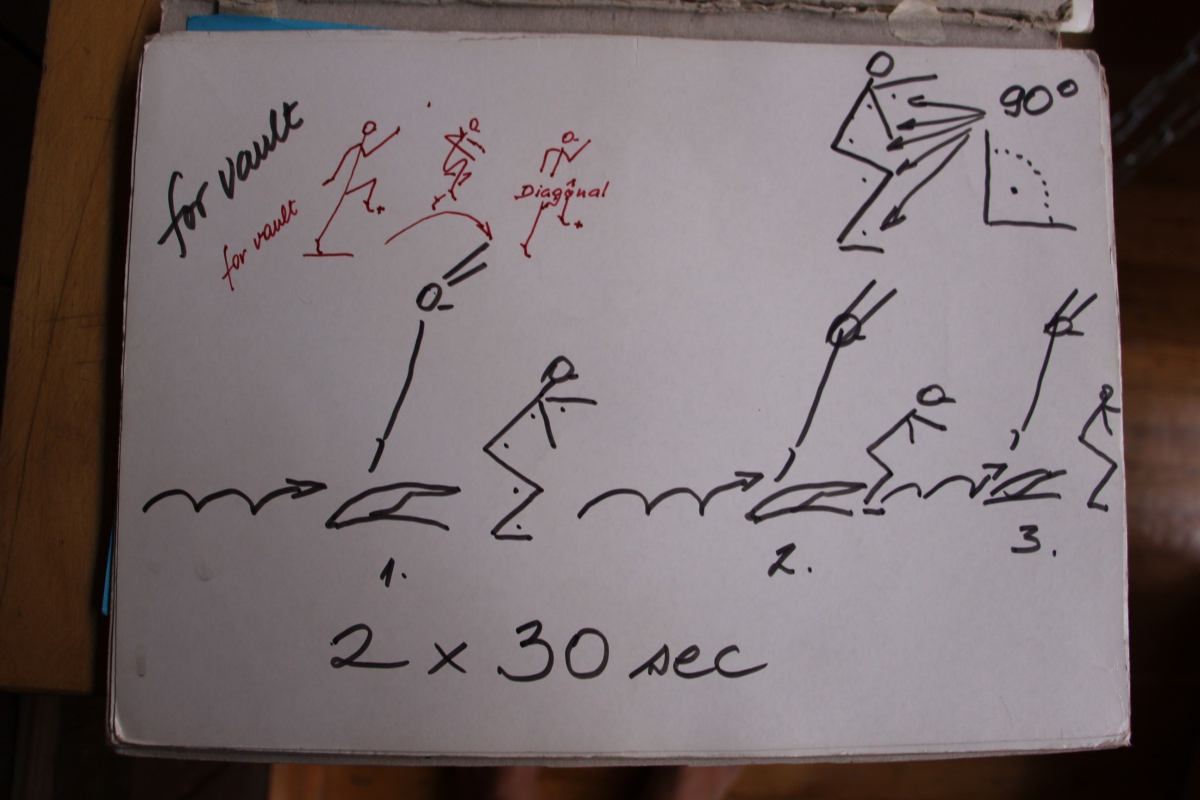 for vault
for vault
Diagonal
90°
1.
2.
3.
2 x 30 sec